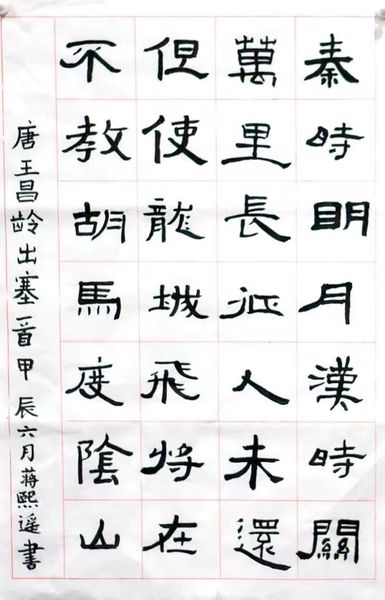 秦時明月漢時關
萬里長征人未還
但使龍城飛將在
不教胡馬度陰山
唐王昌齡出塞一首甲辰六月蔣熙遥書